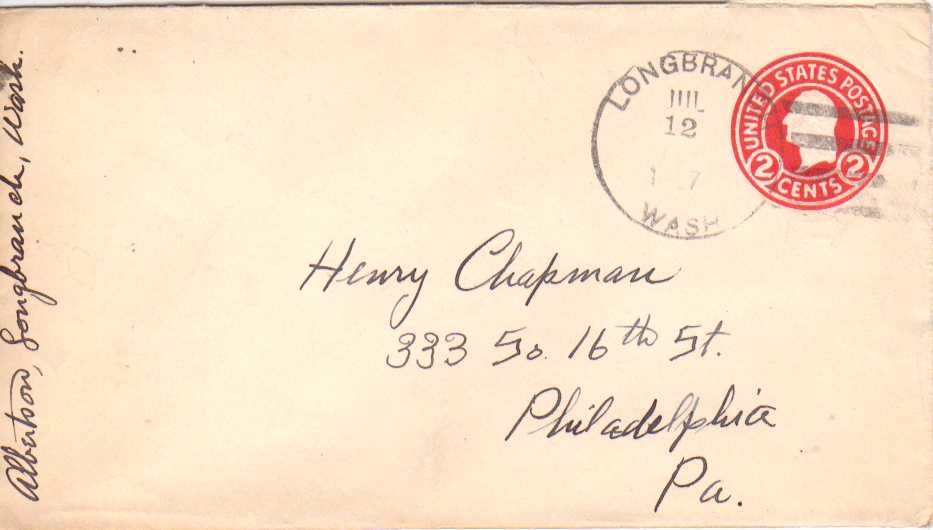 Albertson, Longbranch, Wash.
LONGBRAN
JUL
12
7
WASH
UNITED STATES POSTAGE
2 CENTS 2
Henry Chapman
333 So. 16th St.
Philadelphia
Pa.